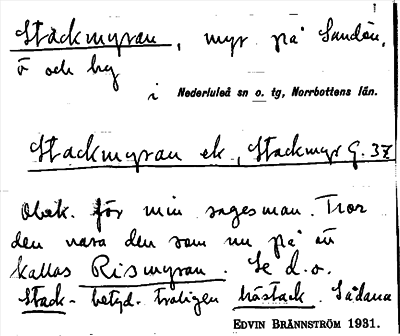 Stackmyran, myr på Sandön,
ö och by
i Nederluleå sn o. tg, Norrbottens län.
Stackmyran ek., Stackmyr G. 37
Obek. för min sagesman. Tror
den vara den som nu på ön
kallas Rismyran. Se d. o.
Stack- betyd. troligen hästack. Sådana
EDVIN BRÄNNSTRÖM 1931.